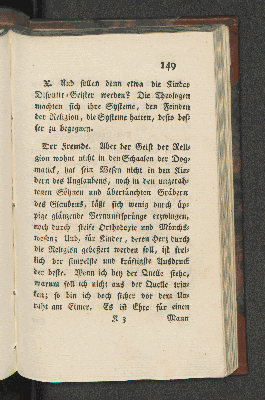 149
X. Und sollen denn etwa die Kinder
Disputir-Geister werden? Die Theologen
machten sich ihre Systeme, den Feinden
der Religion, die Systeme hatten, desto bes-
ser zu begegnen.
Der Fremde. Aber der Geist der Reli-
gion wohnt nicht in den Schaalen der Dog-
matick, hat sein Wesen nicht in den Kin-
dern des Unglaubens, noch in den ungerath-
nen Söhnen und übertünchten Gräbern
des Glaubens, läßt sich wenig durch üp-
pige glänzende Vernunftsprünge erzwingen,
noch durch steife Orthodoxie und Mönchs-
wesen; Und, für Kinder, deren Herz durch
die Religion gebessert werden soll, ist frei-
lich der simpelste und kräftigste Ausdruck
der beste. Wenn ich bey der Quelle stehe,
warum soll ich nicht aus der Quelle trin-
ken; so bin ich doch sicher vor dem Un-
raht am Eimer. Es ist Ehre für einen
K 3 Mann